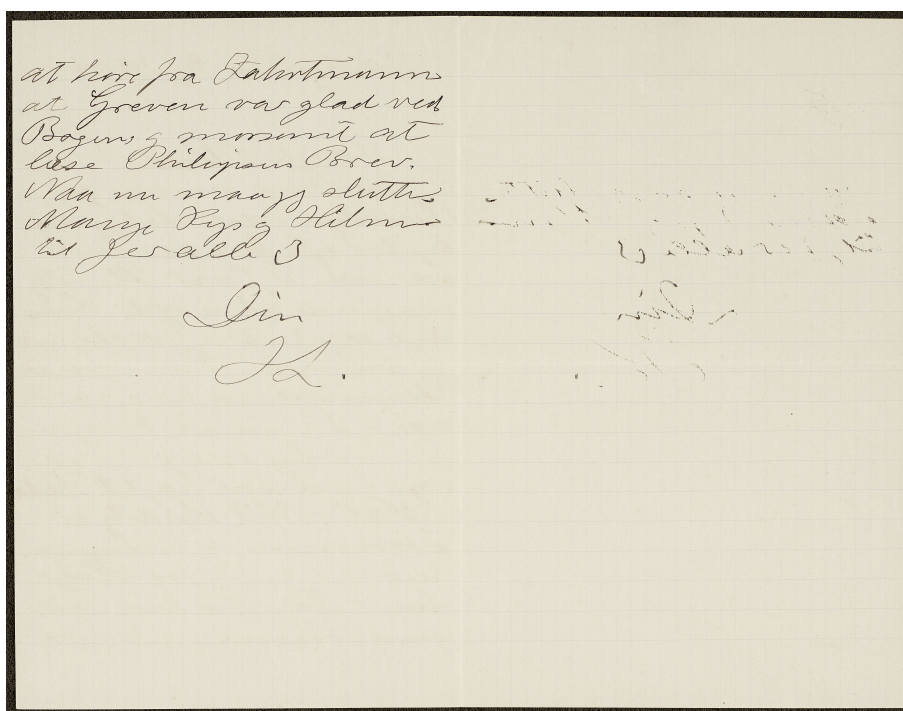 at höre fra Zahrtmann
at Greven var glad ved
Bogen og morsomt at
læse Philipsens Brev.
Naa nu maa jeg slutte
Mange Kys og Hilsn
til Jer alle 3
Din
JL.